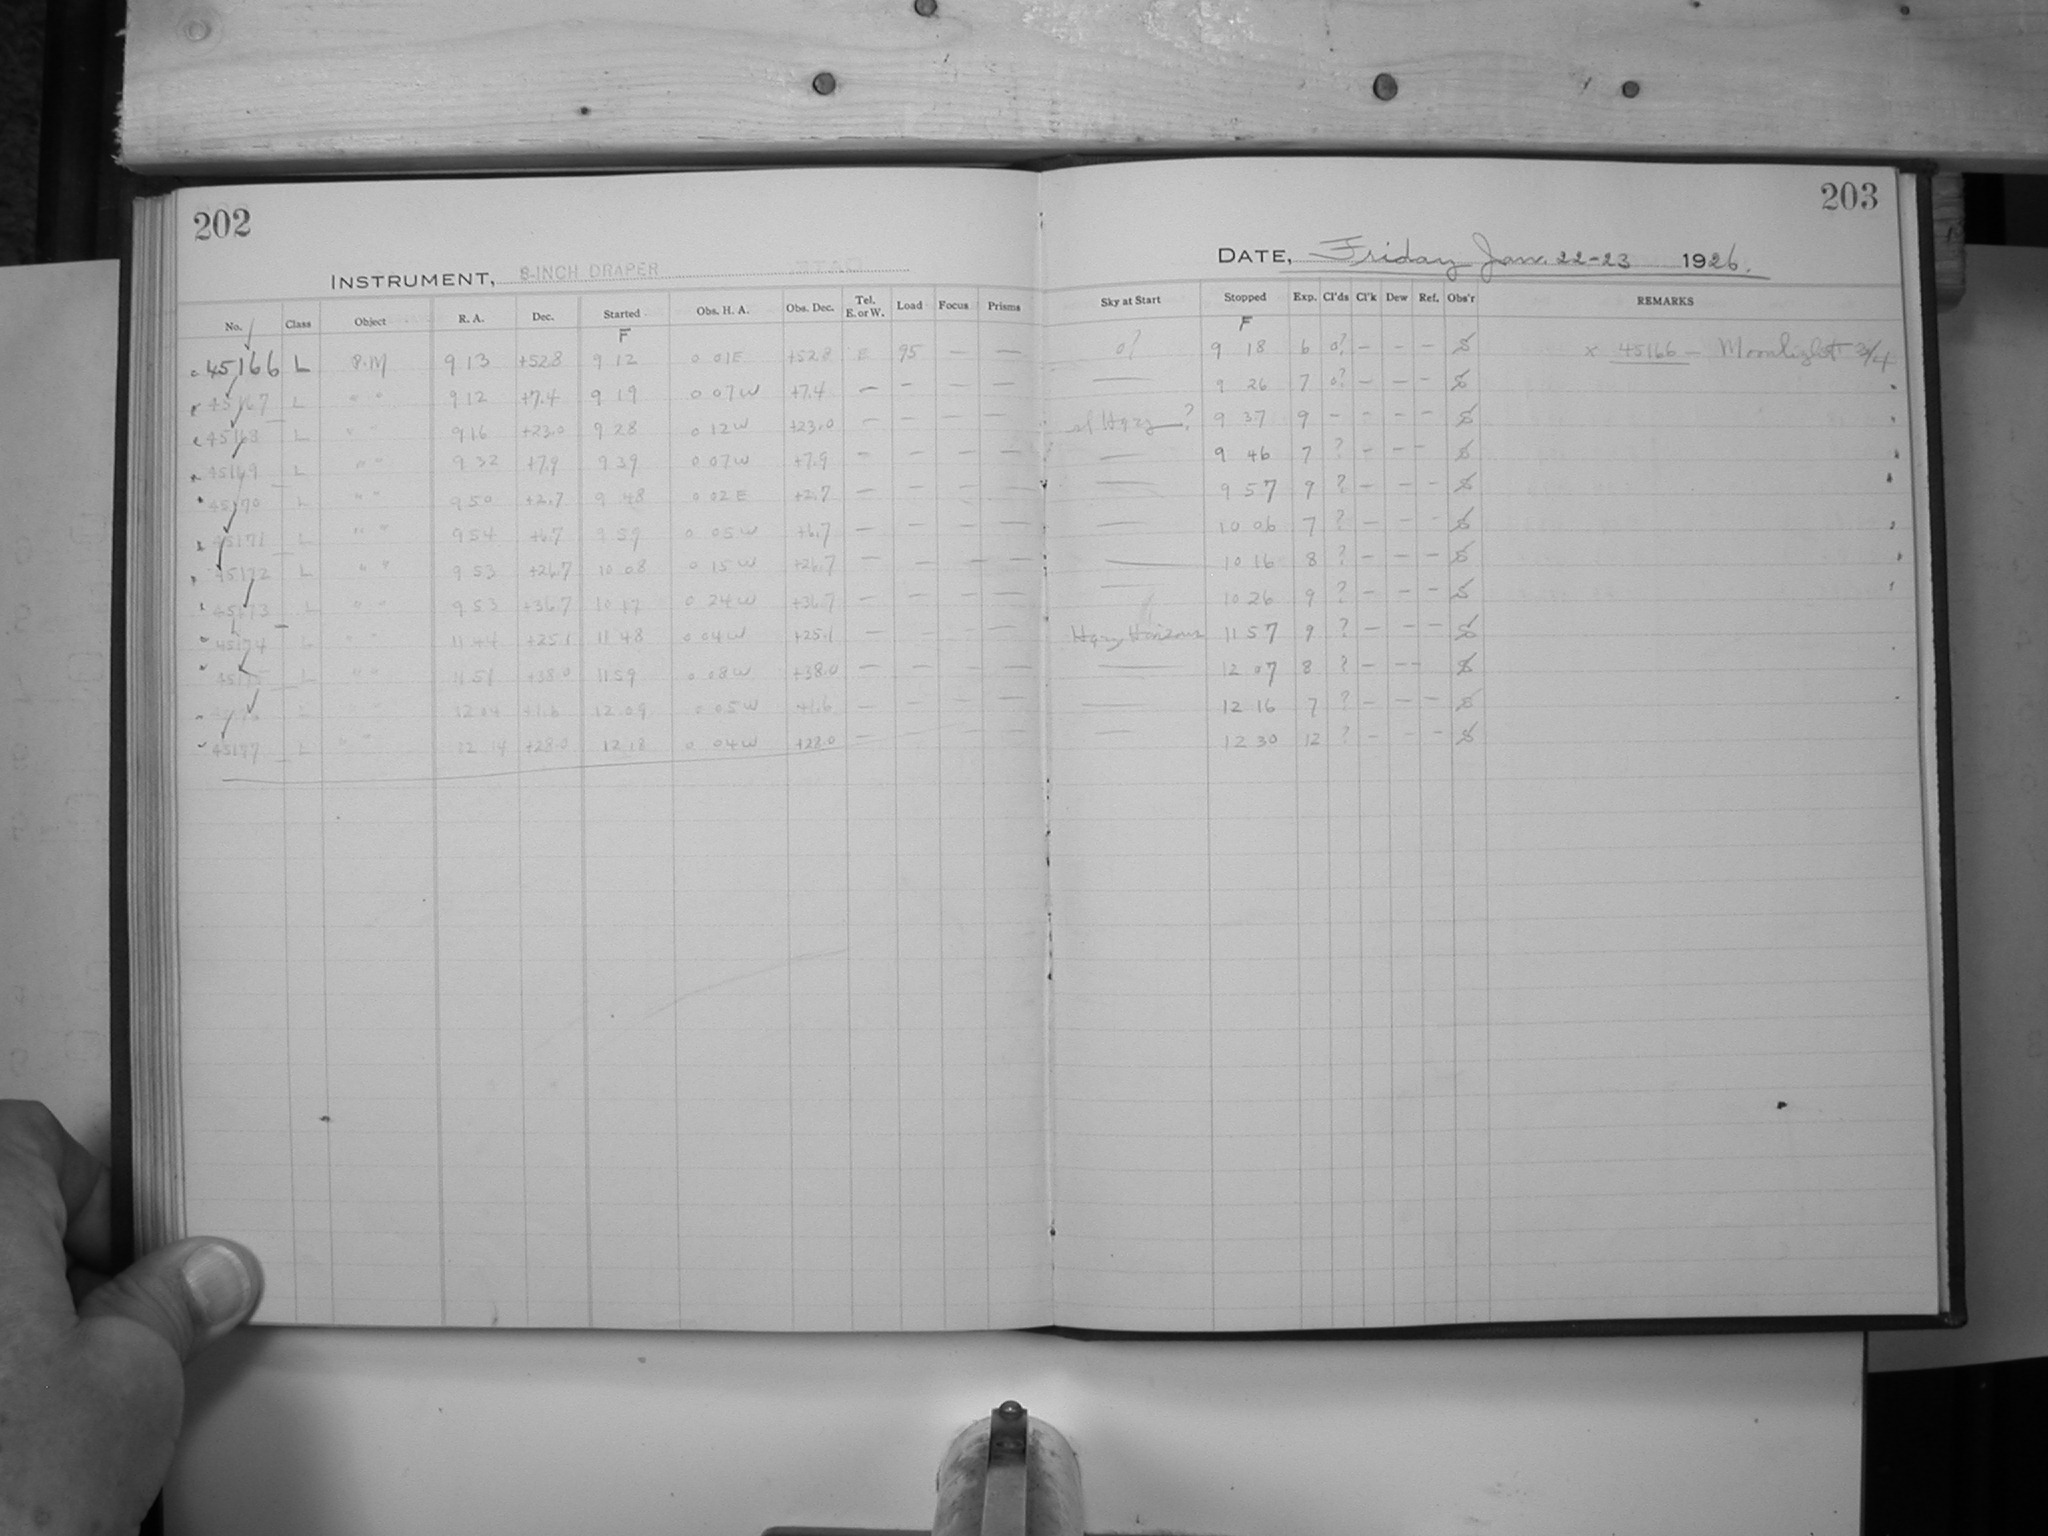 202
203
INSTRUMENT, 8-INCH DRAPER
DATE, Friday Jan. 22-23 1926.
No. Class Object R. A. Dec. Started Obs. H. A. Obs. Dec. Tel. E. or W. Load Focus Prisms Sky at Start Stopped Exp. Cl'ds Cl'k Dew Ref. Obs'r REMARKS
F F
45166 L P.M 9 13 +52.8 9 12 0 01E +52.8 E 95 — — 9 18 6 0? – – – S x 45166 – Moonlight 3/4
45167 L " " 9 12 +7.4 9 19 0 07W +7.4 — – — — —— 9 26 7 0? – – – S
45168 L " " 9 16 +23.0 9 28 0 12W +23.0 — – — — sl Hazy—? 9 37 9 – – – – S
45169 L " " 9 32 +7.9 9 39 0 07W +7.9 — – — — —— 9 46 7 ? – – – S
45170 L " " 9 50 +2.7 9 48 0 02E +2.7 — – — — —— 9 57 9 ? – – – S
45171 L " " 9 54 +6.7 9 59 0 05W +6.7 — – — — —— 10 06 7 ? – – – S
45172 L " " 9 53 +26.7 10 08 0 15W +26.7 — – — — —— 10 16 8 ? – – – S
45173 L " " 9 53 +36.7 10 17 0 24W +36.7 — – — — —— 10 26 9 ? – – – S
45174 L " " 11 44 +25.1 11 48 0 04W +25.1 — – — — Hazy Horizons 11 57 9 ? – – – S
L " " 11 51 +38.0 11 59 0 08W +38.0 — – — — —— 12 07 8 ? – – – S
L " " 12 04 +1.6 12 09 0 05W +1.6 — – — — —— 12 16 7 ? – – – S
45177 L " " 12 14 +28.0 12 18 0 04W +28.0 — – — — —— 12 30 12 ? – – – S